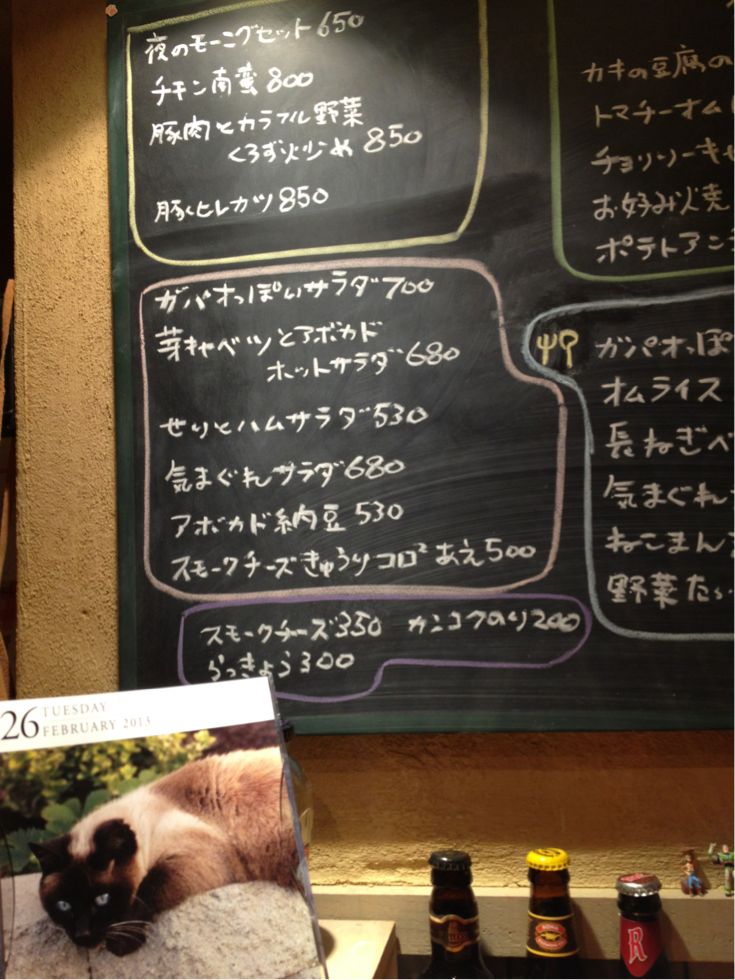 夜のモーニグセット 650
チキン南蛮 800
豚肉とカラフル野菜
くろず火少め 850
豚ヒレカツ 850
ガパオっぽいサラダ 700
芽キャベツとアボカド
ホットサラダ 680
せりとハムサラダ 530
気まぐれサラダ 680
アボカド納豆 530
スモークチーズきゅうりコロ²あえ 500
スモークチーズ 350 カンコクのり 200
らっきょう 300
カキの豆腐の
トマチーオム
チョリソーキャ
お好み火焼
ポテトアン
ガパオっぽ
オムライス
長ねぎベ
気まぐれ
ねこまん
野菜たっ
26 TUESDAY
FEBRUARY 2013
R